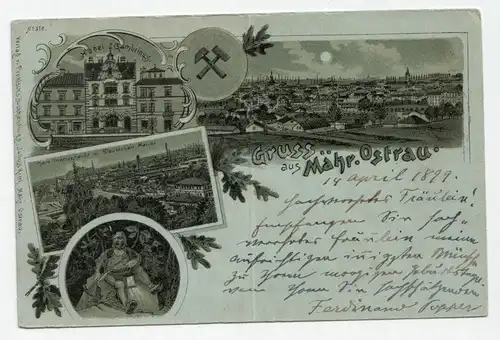 Nº 376.
Hotel Gambrinus
Gruss
aus
Mähr. Ostrau.
14 April 1899.
Hochverehrtes Fräulein!
Empfangen Sie hoch-
verehrtes Fräulein meine
aufrichtigen innigsten Wünsche
zu Ihrem morgigen Geburtstage
von Ihrem Sie hochschätzenden
Ferdinand Popper